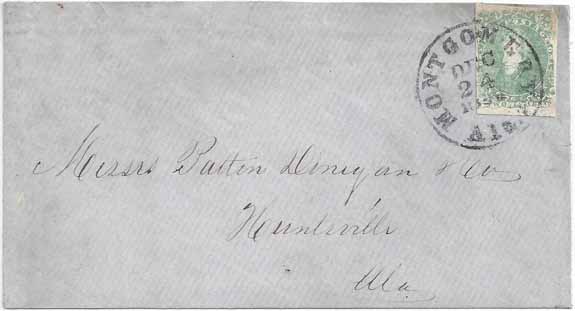 MONTGOMERY
DEC
24
Ala
Messrs Patton Donegan & Co
Huntsville
Ala